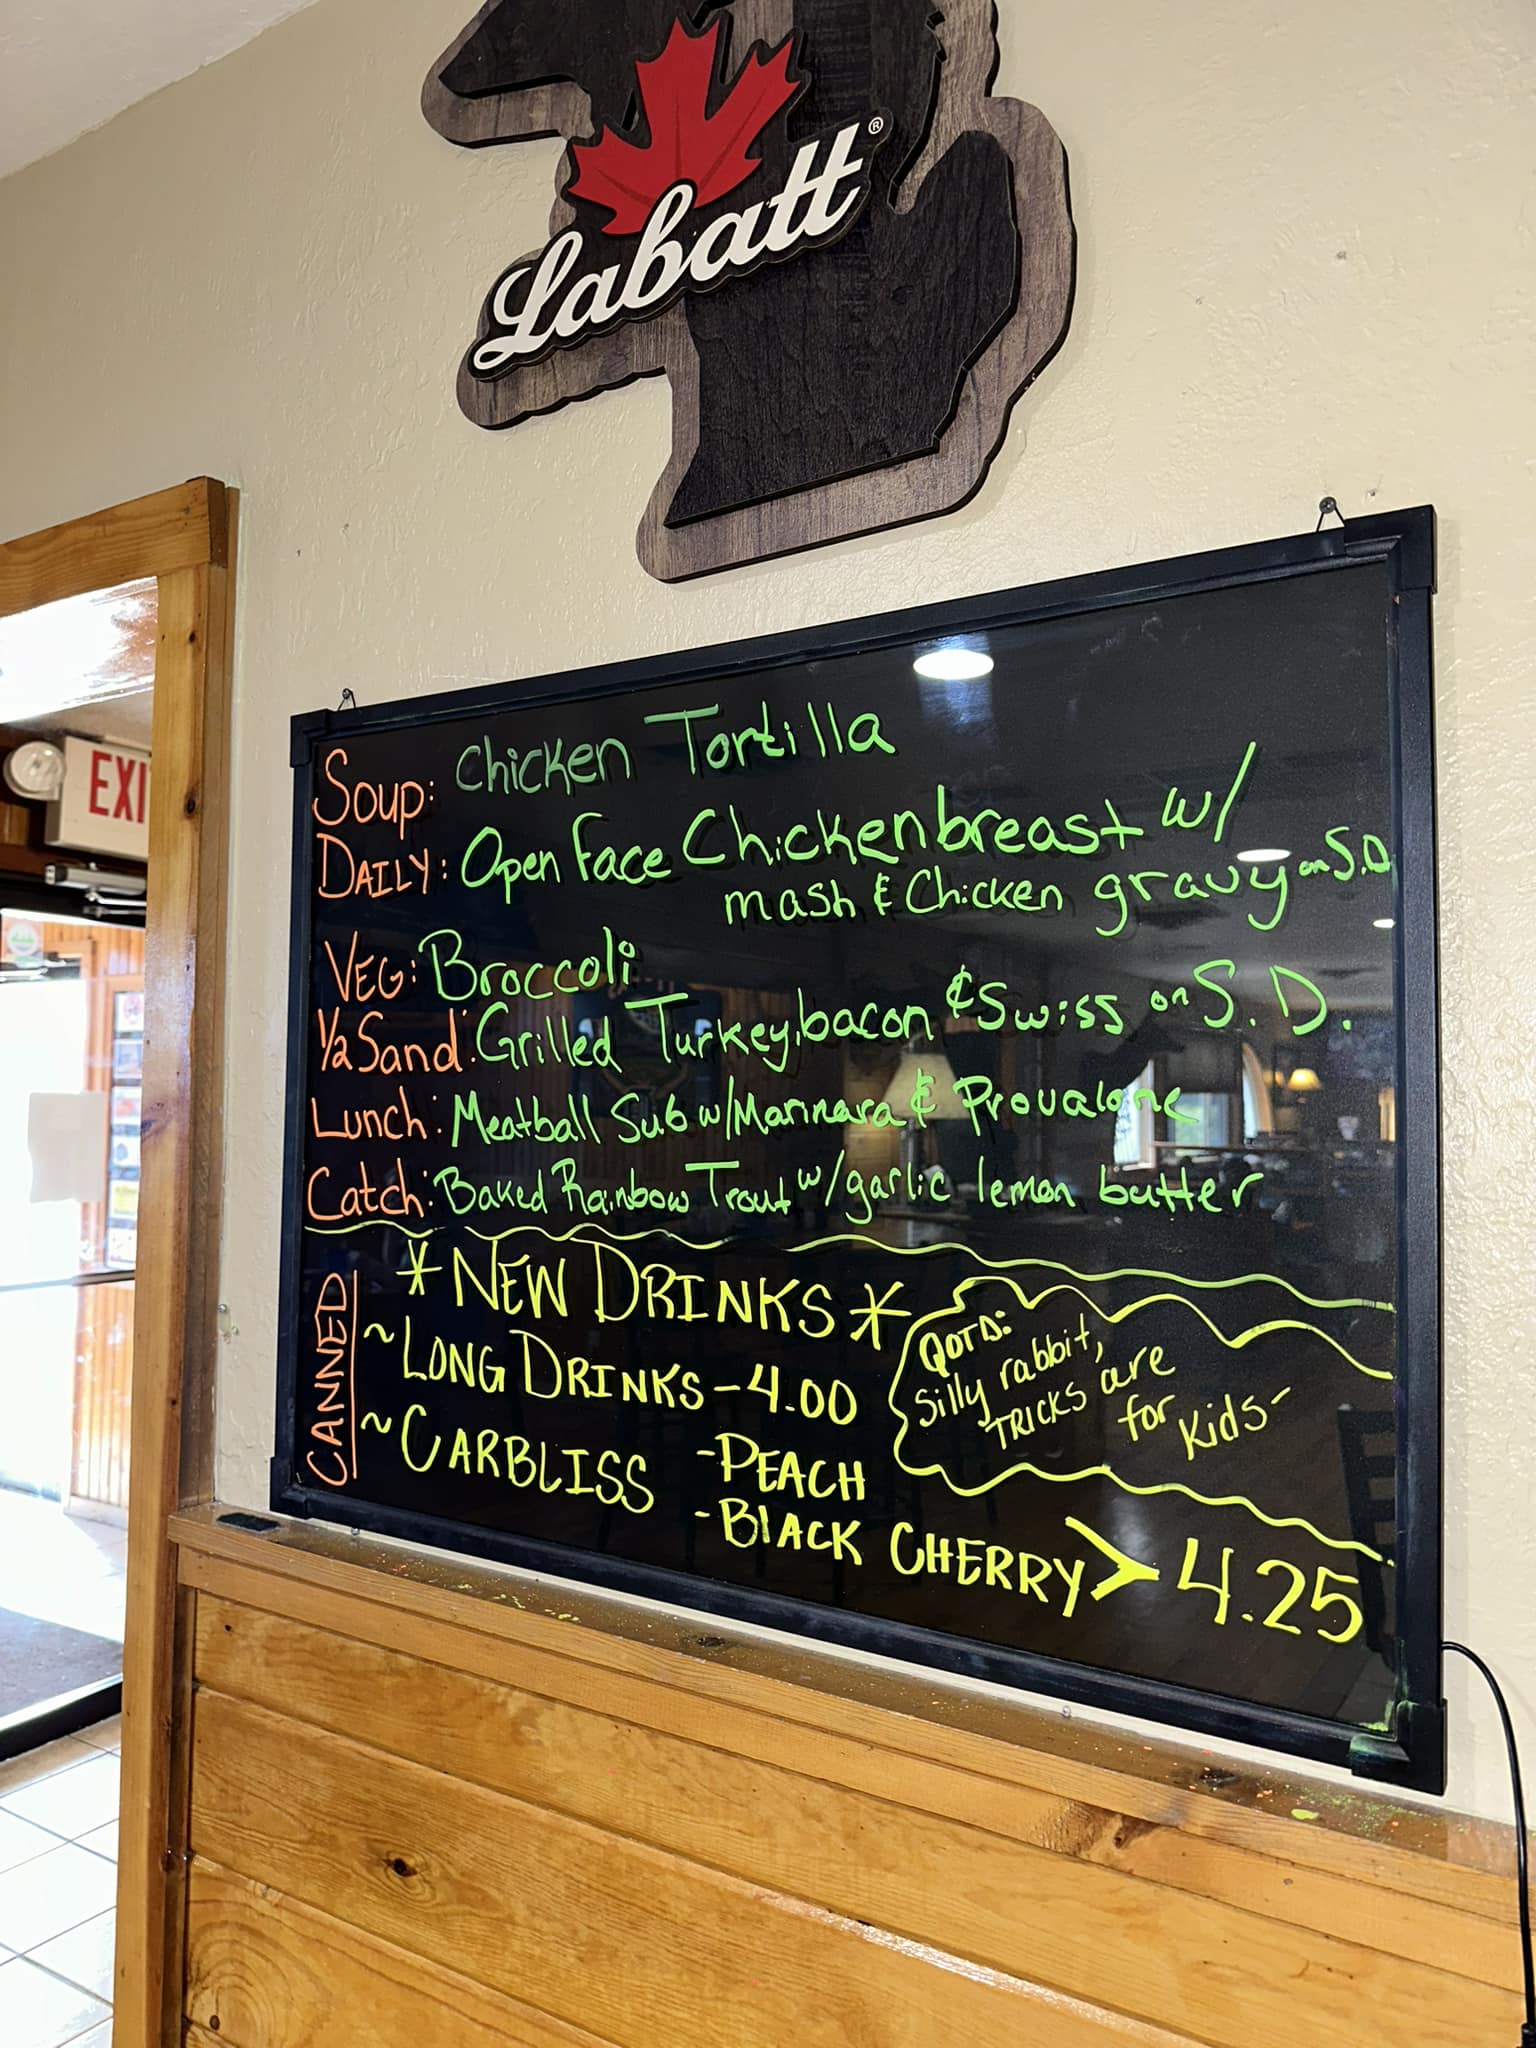 Labatt®
EXI
Soup: Chicken Tortilla
DAILY: Open Face Chickenbreast w/
mash & Chicken gravy on S.D.
VEG: Broccoli
1/2 Sand: Grilled Turkey, bacon & Swiss on S.D.
Lunch: Meatball Sub w/Marinara & Provalone
Catch: Baked Rainbow Trout w/garlic lemon butter
*NEW DRINKS*
CANNED
~LONG DRINKS - 4.00
~CARBLISS -PEACH
-BLACK CHERRY > 4.25
QOTD:
Silly rabbit,
TRICKS are
for
Kids-